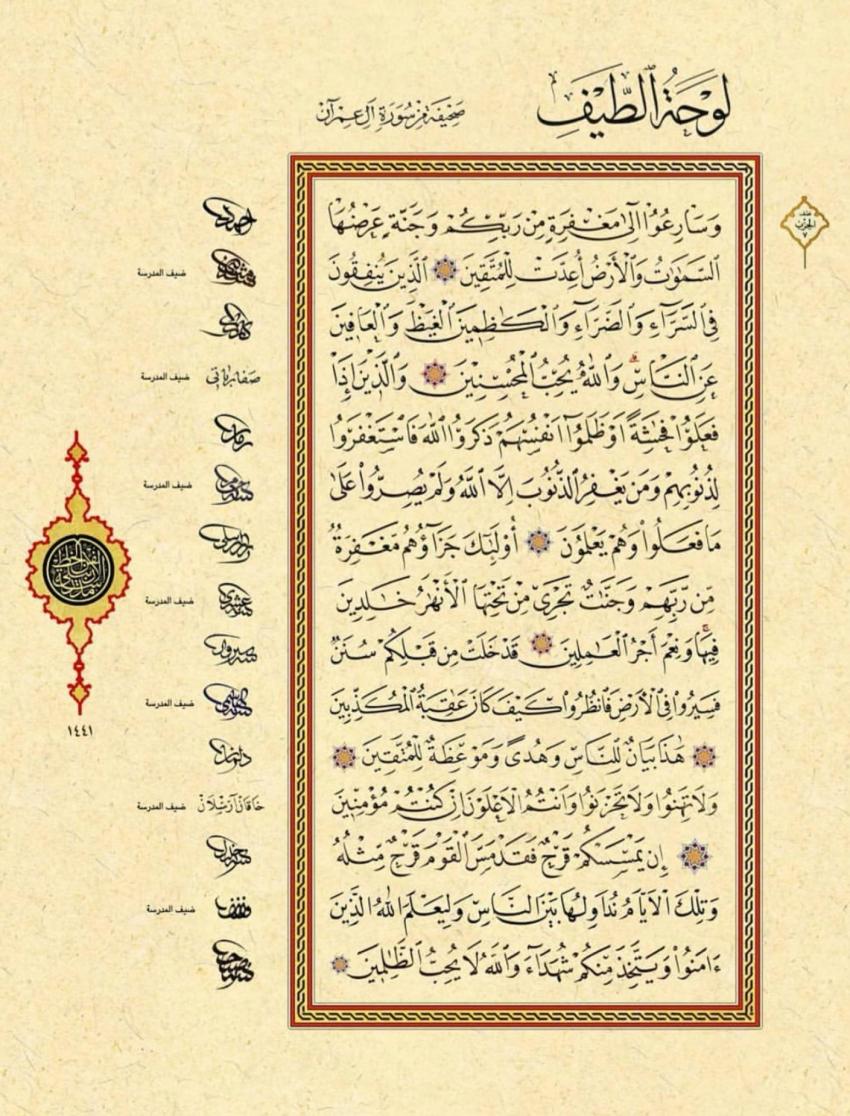 لَوْحَةُ الطَّيْفِ
صَحِيفَة مِنْ سُورَةِ آلِ عِمْرَآن
وَسَارِعُوٓا۟ إِلَىٰ مَغْفِرَةٍ مِّن رَّبِّكُمْ وَجَنَّةٍ عَرْضُهَا
السَّمَٰوَٰتُ وَالْأَرْضُ أُعِدَّتْ لِلْمُتَّقِينَ الَّذِينَ يُنفِقُونَ
فِى السَّرَّآءِ وَالضَّرَّآءِ وَالْكَٰظِمِينَ الْغَيْظَ وَالْعَافِينَ
عَنِ النَّاسِ وَاللَّهُ يُحِبُّ الْمُحْسِنِينَ وَالَّذِينَ إِذَا
فَعَلُوا۟ فَٰحِشَةً أَوْ ظَلَمُوٓا۟ أَنفُسَهُمْ ذَكَرُوا۟ اللَّهَ فَاسْتَغْفَرُوا۟
لِذُنُوبِهِمْ وَمَن يَغْفِرُ الذُّنُوبَ إِلَّا اللَّهُ وَلَمْ يُصِرُّوا۟ عَلَىٰ
مَا فَعَلُوا۟ وَهُمْ يَعْلَمُونَ أُو۟لَٰٓئِكَ جَزَآؤُهُم مَّغْفِرَةٌ
مِّن رَّبِّهِمْ وَجَنَّٰتٌ تَجْرِى مِن تَحْتِهَا الْأَنْهَٰرُ خَٰلِدِينَ
فِيهَا وَنِعْمَ أَجْرُ الْعَٰمِلِينَ قَدْ خَلَتْ مِن قَبْلِكُمْ سُنَنٌ
فَسِيرُوا۟ فِى الْأَرْضِ فَانظُرُوا۟ كَيْفَ كَانَ عَٰقِبَةُ الْمُكَذِّبِينَ
هَٰذَا بَيَانٌ لِّلنَّاسِ وَهُدًى وَمَوْعِظَةٌ لِّلْمُتَّقِينَ
وَلَا تَهِنُوا۟ وَلَا تَحْزَنُوا۟ وَأَنتُمُ الْأَعْلَوْنَ إِن كُنتُم مُّؤْمِنِينَ
إِن يَمْسَسْكُمْ قَرْحٌ فَقَدْ مَسَّ الْقَوْمَ قَرْحٌ مِّثْلُهُ
وَتِلْكَ الْأَيَّامُ نُدَاوِلُهَا بَيْنَ النَّاسِ وَلِيَعْلَمَ اللَّهُ الَّذِينَ
ءَامَنُوا۟ وَيَتَّخِذَ مِنكُمْ شُهَدَآءَ وَاللَّهُ لَا يُحِبُّ الظَّٰلِمِينَ
ضيف المدرسة
ضيف المدرسة
ضيف المدرسة
ضيف المدرسة
ضيف المدرسة
خاقان آرسلان ضيف المدرسة
ضيف المدرسة
١٤٤١